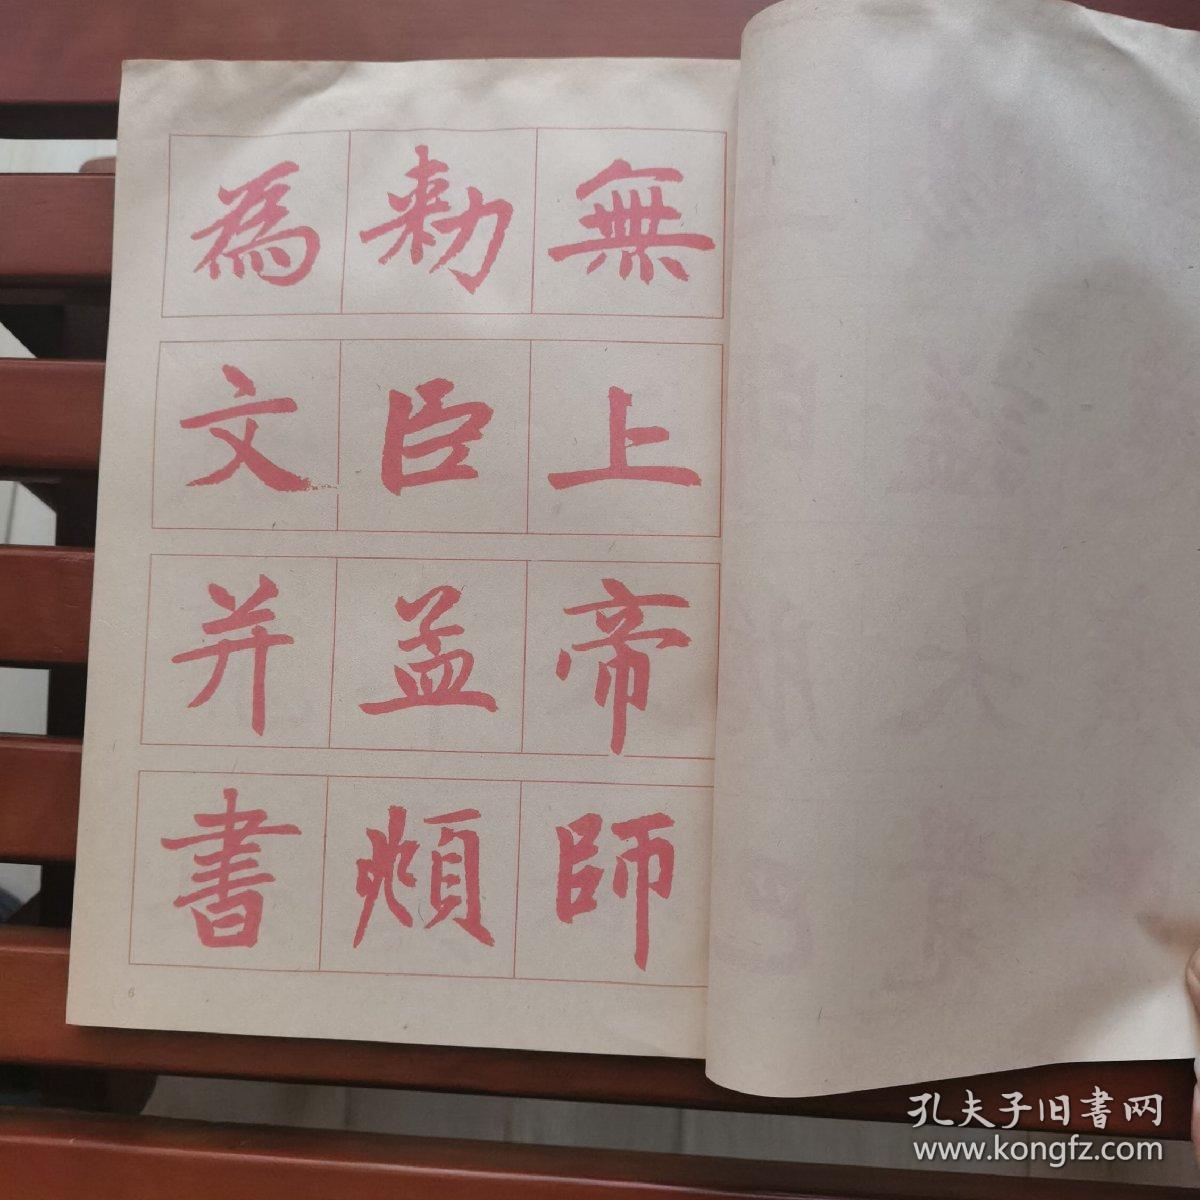 無上帝師
勑臣孟頫
為文并書
6
孔夫子旧书网
www.kongfz.com